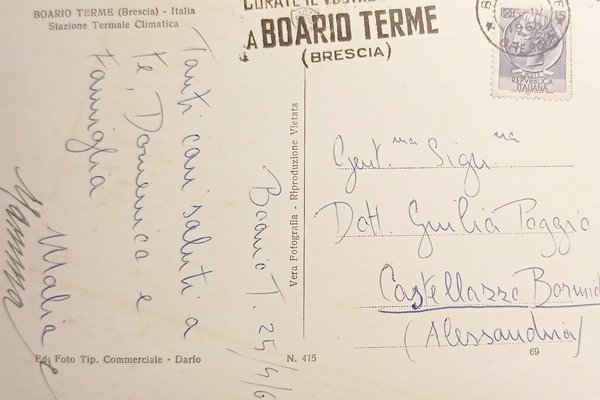 BOARIO TERME (Brescia) - Italia
Stazione Termale Climatica
CURATE IL VOSTRO
A BOARIO TERME
(BRESCIA)
15
POSTE
REPVBBLICA
ITALIANA
Tanti cari saluti a
te, Domenico e
famiglia
Boario T. 25/4/6
Vera Fotografia - Riproduzione Vietata
Gent.ma Sign.na
Dott. Giulia Poggio
Castellazzo Bormid
(Alessandria)
Ed. Foto Tip. Commerciale - Darfo
N. 475
69